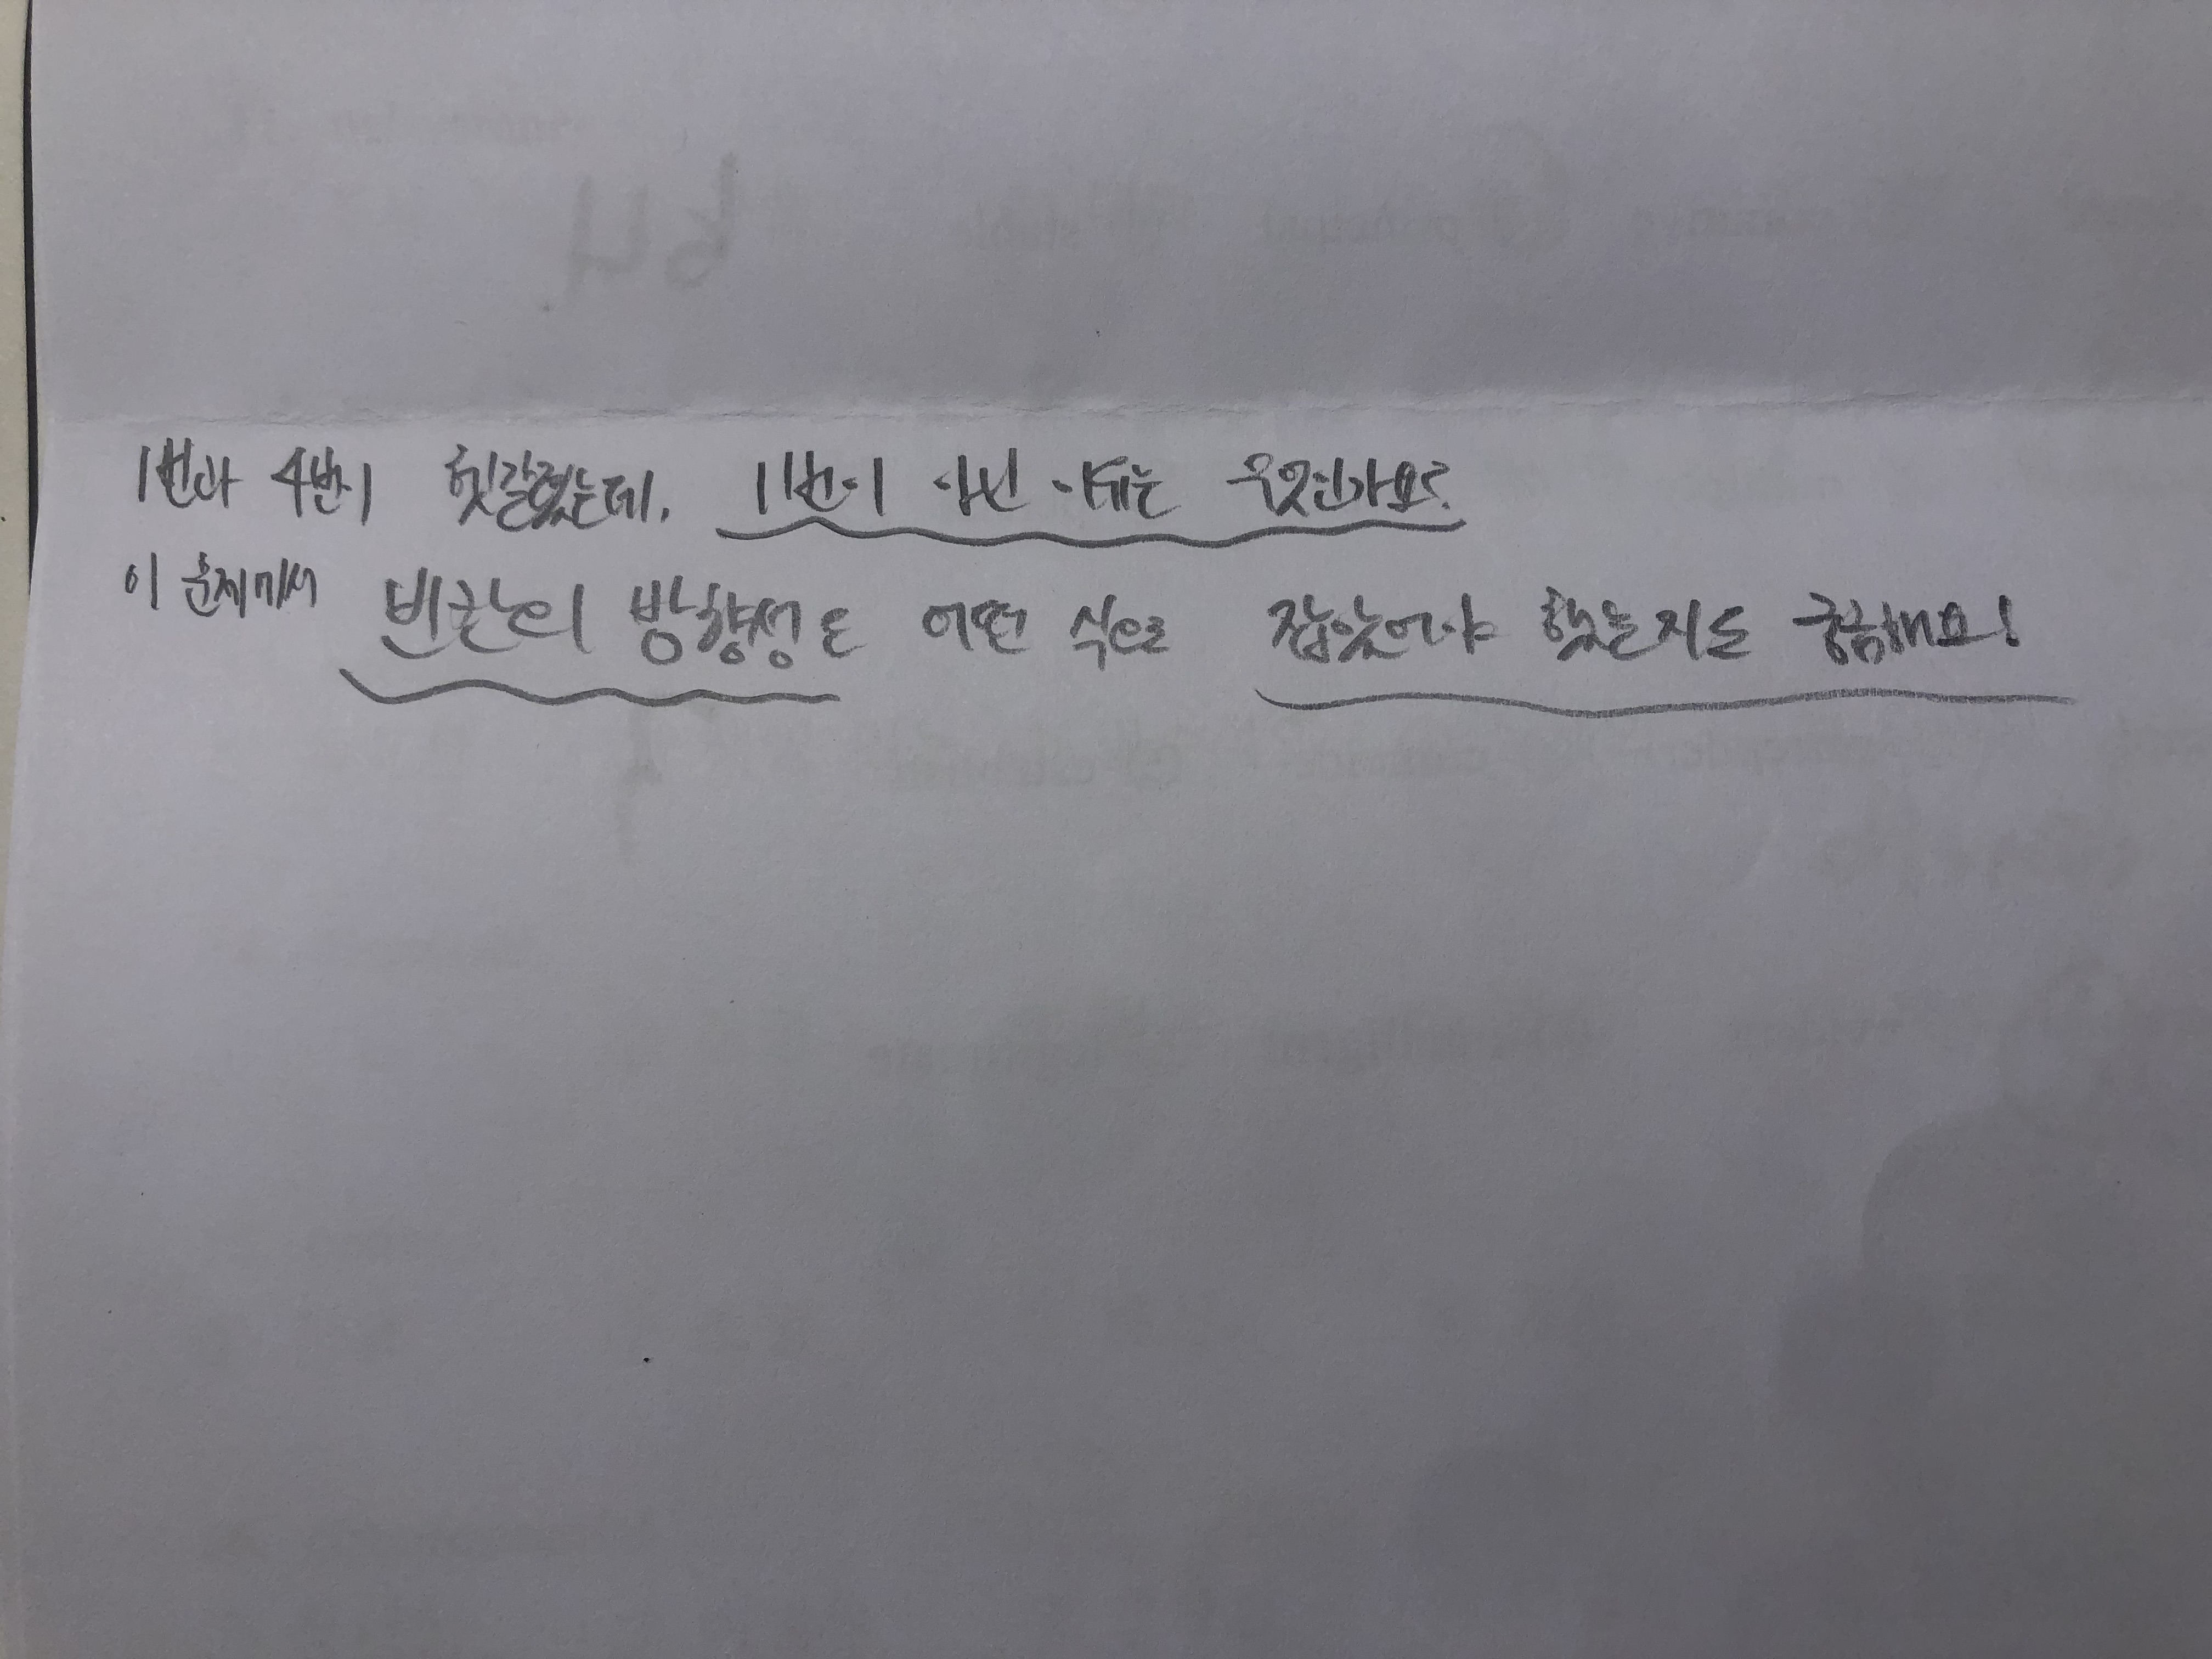 1번과 4번이 헷갈렸는데, 1번이 아닌 이유는 무엇인가요?
이 문제에서 빈칸의 방향성을 어떤 식으로 잡았어야 했는지도 궁금해요!